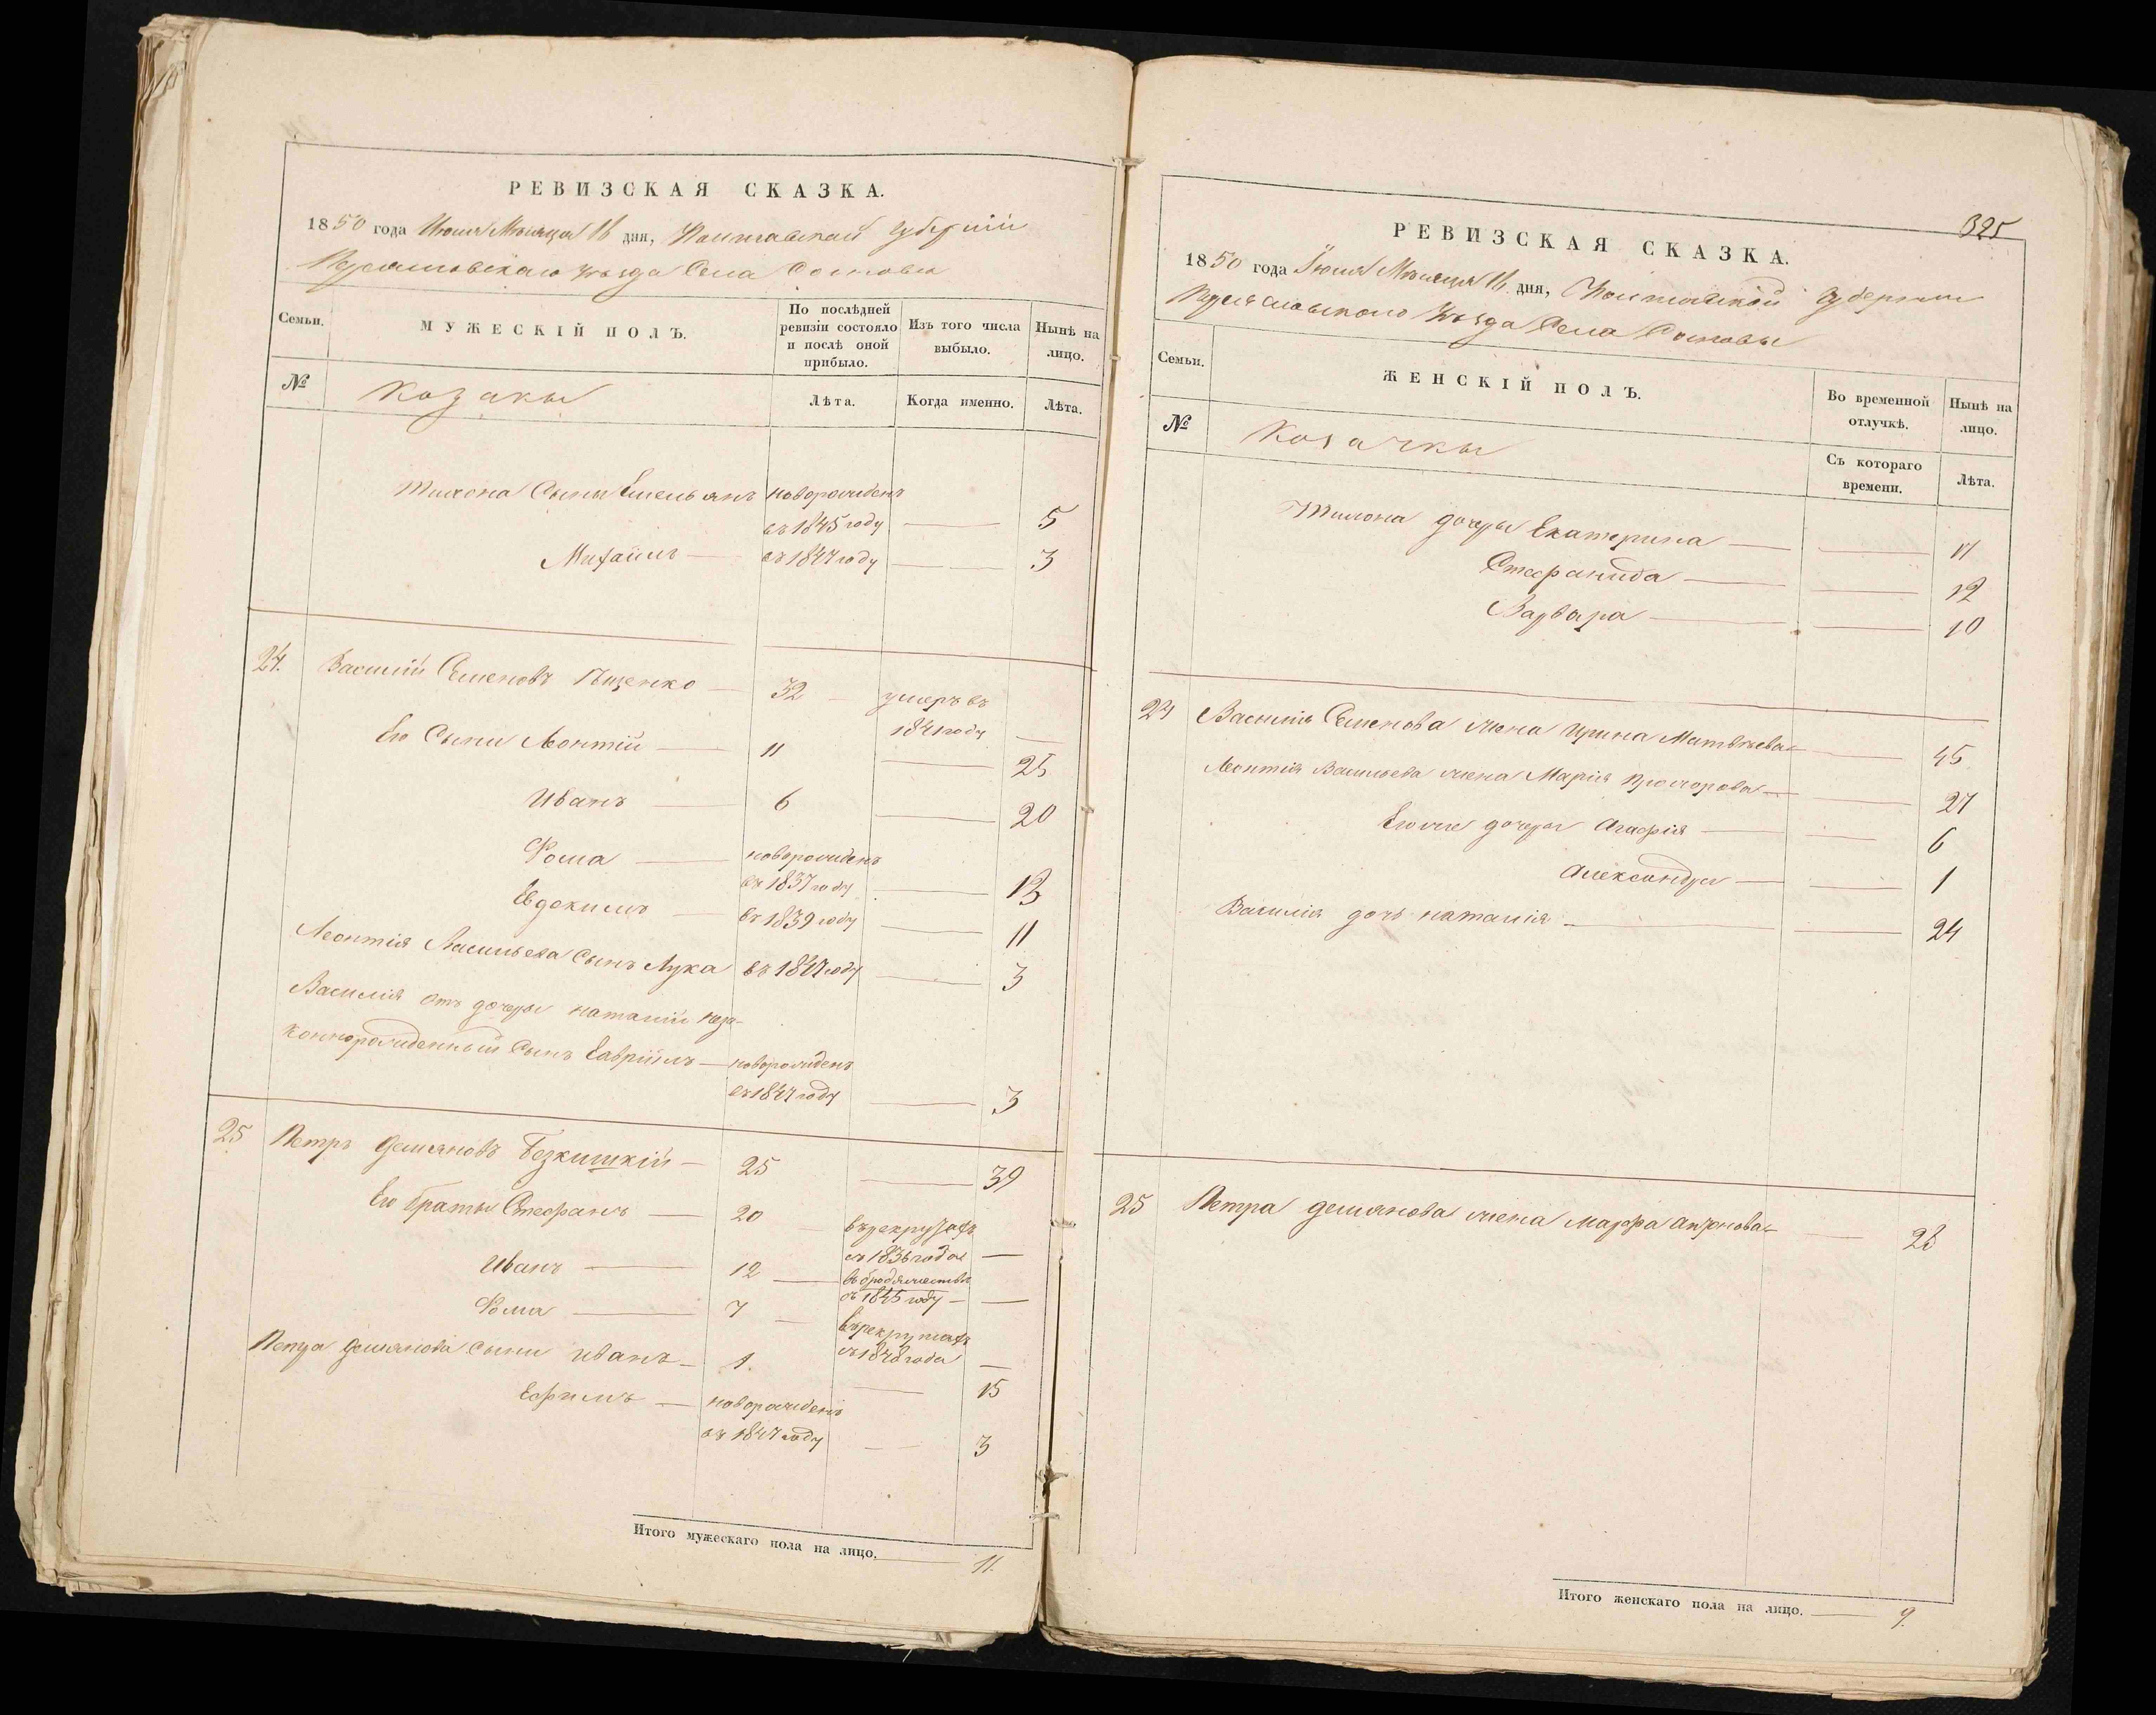 РЕВИЗСКАЯ СКАЗКА.
1850 года Июня Мѣсяца 16 дня, Полтавской губерніи
Переяславскаго уѣзда Села Сосновы
Семьи. МУЖЕСКІЙ ПОЛЪ. По послѣдней ревизіи состояло и послѣ оной прибыло. Изъ того числа выбыло. Нынѣ на лицо.
№ Козаки Лѣта. Когда именно. Лѣта.
Тихона Сыны Емельянъ новорожденъ
въ 1845 году 5
Михаилъ въ 1847 году 3
24. Василій Семеновъ Пященко 32 умеръ въ
1841 году
Его Сыны Леонтій 11 25
Иванъ 6 20
Фома новорожденъ
въ 1837 году 13
Евдокимъ въ 1839 году 11
Леонтія Васильева Сынъ Лука въ 1847 году 3
Василія отъ дочери Наталіи неза-
коннорожденный Сынъ Гавріилъ новорожденъ
въ 1847 году 3
25 Петръ Демяновъ Безкишкій 25 39
Его браты Стефанъ 20 въ рекрутахъ
съ 1836 года
Иванъ 12 въ бродяжествѣ
съ 1845 году
Фома 7 въ рекрутахъ
съ 1848 года
Петра Демянова сыны Иванъ 1. 15
Ефимъ новорожденъ
въ 1847 году 3
Итого мужескаго пола на лицо. 11.
325
РЕВИЗСКАЯ СКАЗКА.
1850 года Іюня Мѣсяца 16 дня, Полтавской губерніи
Переяславскаго уѣзда Села Сосновы
Семьи. ЖЕНСКІЙ ПОЛЪ. Во временной отлучкѣ. Нынѣ на лицо.
№ Козачки Съ котораго времени. Лѣта.
Тихона дочери Екатерина 17
Стефанида 12
Варвара 10
24 Василія Семенова жена Ирина Матвѣева 45
Леонтія Васильева жена Марія Прохорова 27
Его же дочери Агафія 6
Александра 1
Василія дочь Наталія 24
25 Петра Демянова жена Марфа
Итого женскаго пола на лицо. 9.